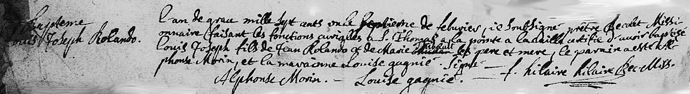 Bapteme
Louis Joseph Rolando.
L'an de grace mille sept cents onze le septieme de febvrier, je Soussigné prêtre Recolet Missi-
onnaire faisant les fonctions curialles a St Thomas a la pointe a la Caille certifie d'avoir baptisé
Louis Joseph fils de Jean Rolando & de Marie ses pere et mere, le parain a esté Al-
phonse Morin, et la maraine Louise gagnié. Signe — f. hilaire hilaire Rec Miss.
Alphonse Morin. — Louise gagnié. —